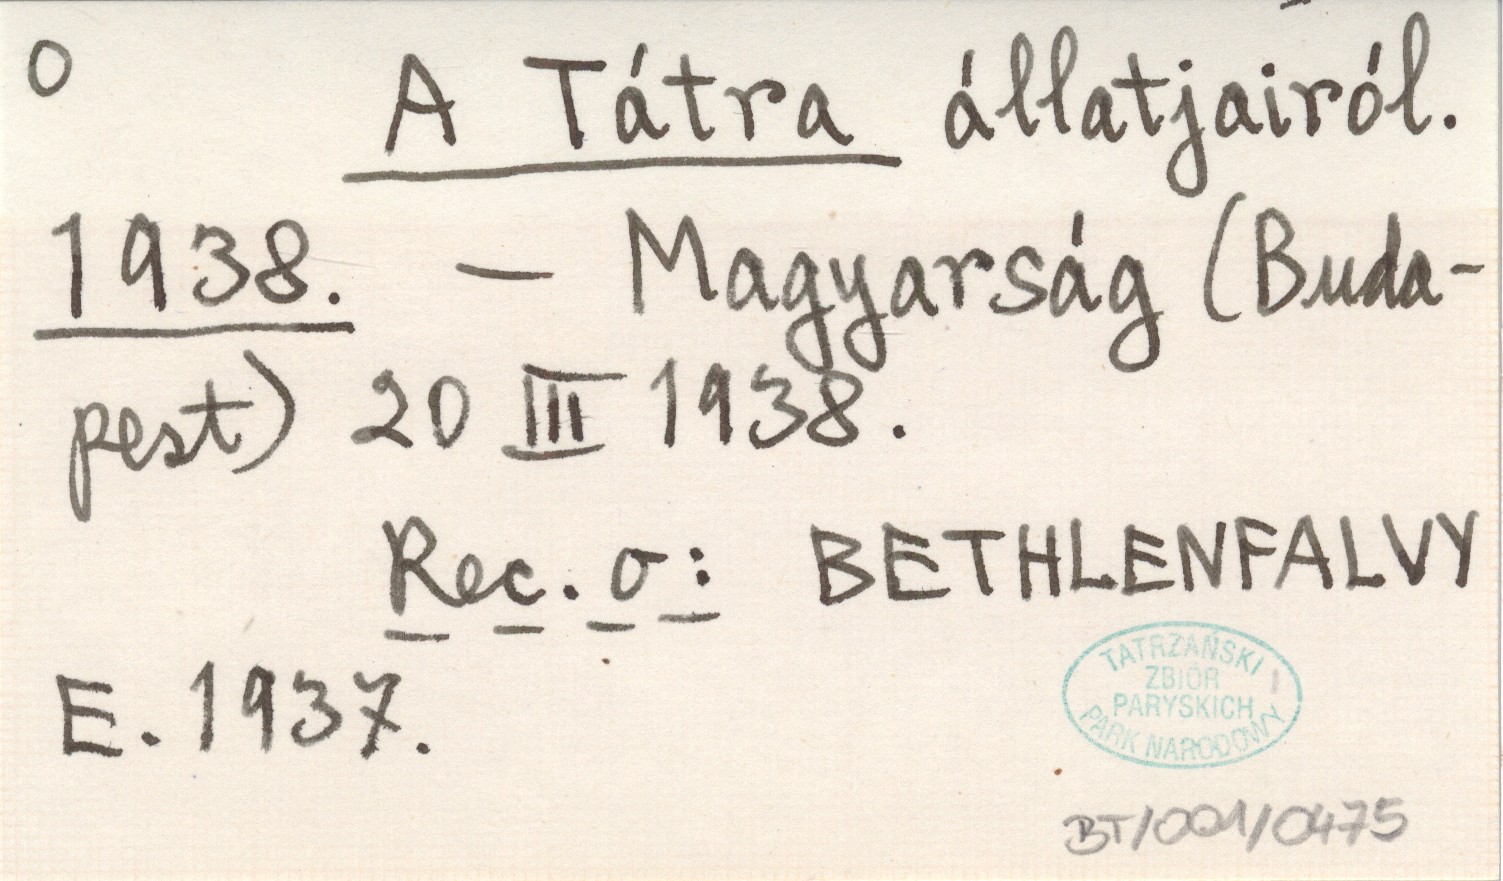 O A Tátra állatjairól.
1938. — Magyarság (Buda-
pest) 20 III 1938.
Rec. o: BETHLENFALVY
E. 1937.
TATRZAŃSKI
ZBIÓR
PARYSKICH
PARK NARODOWY
BT/001/0475